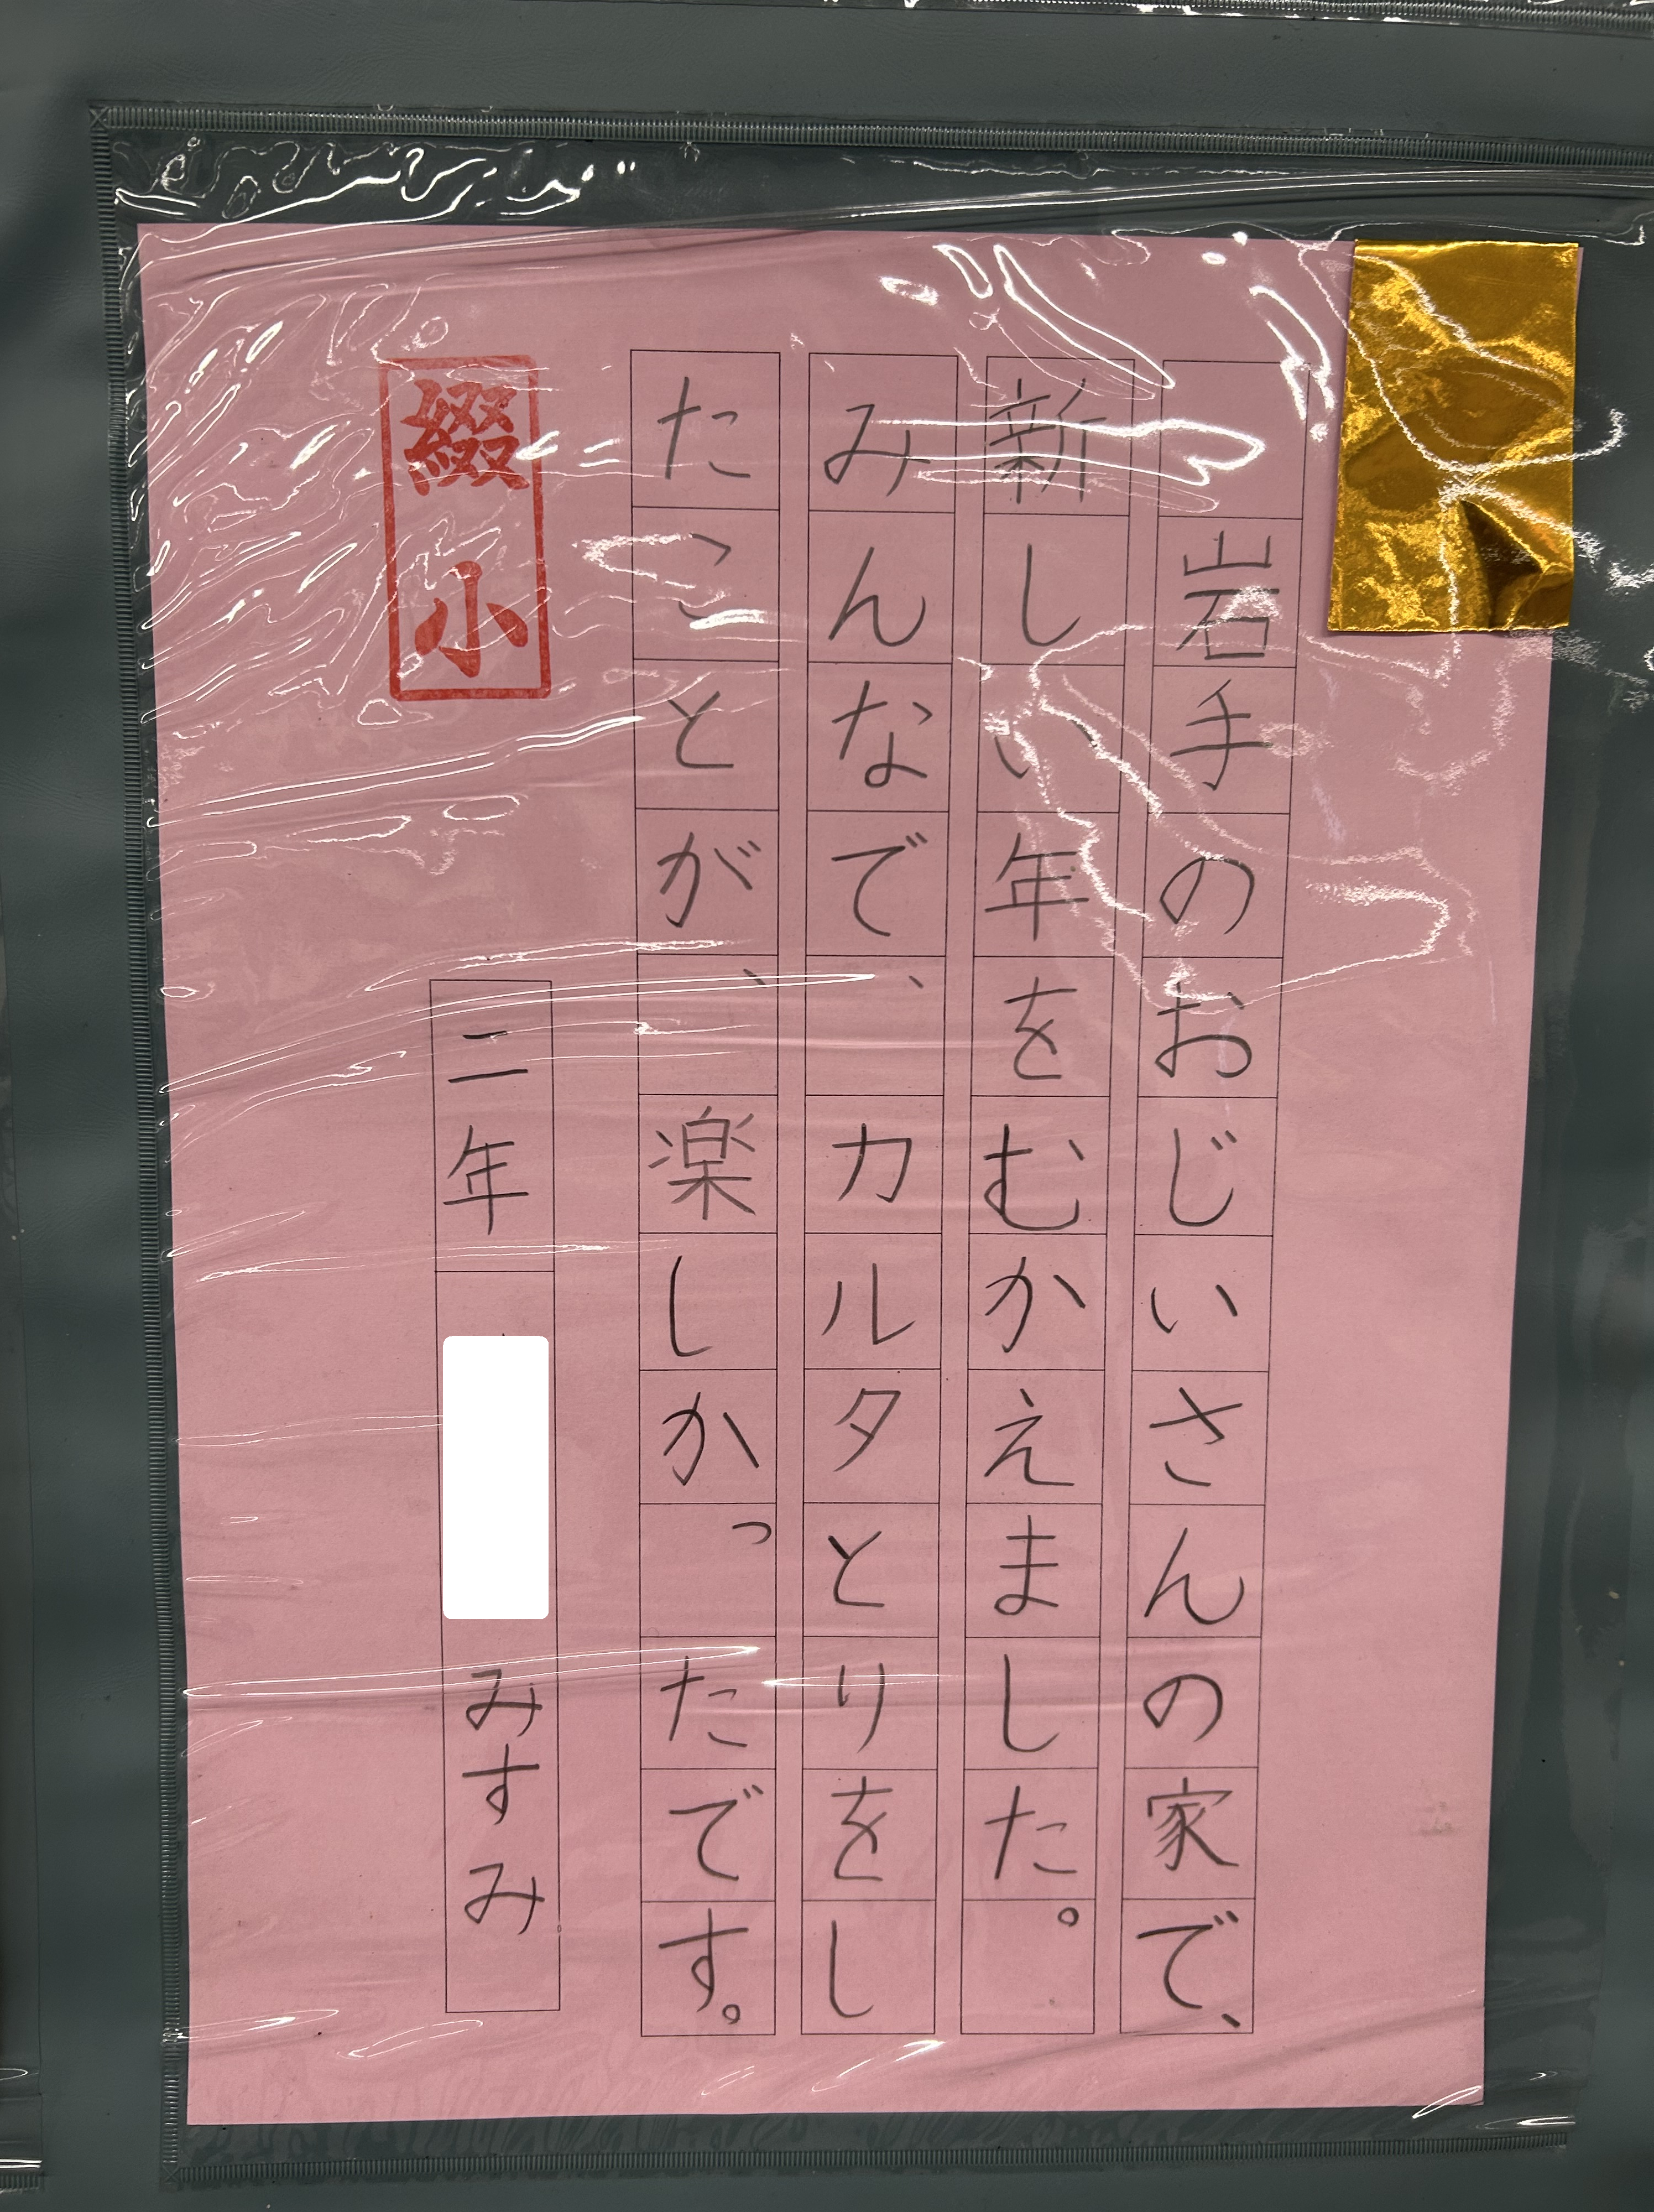 岩手のおじいさんの家で、
新しい年をむかえました。
みんなで、カルタとりをし
たことが、楽しかったです。
二年 みすみ
綴小